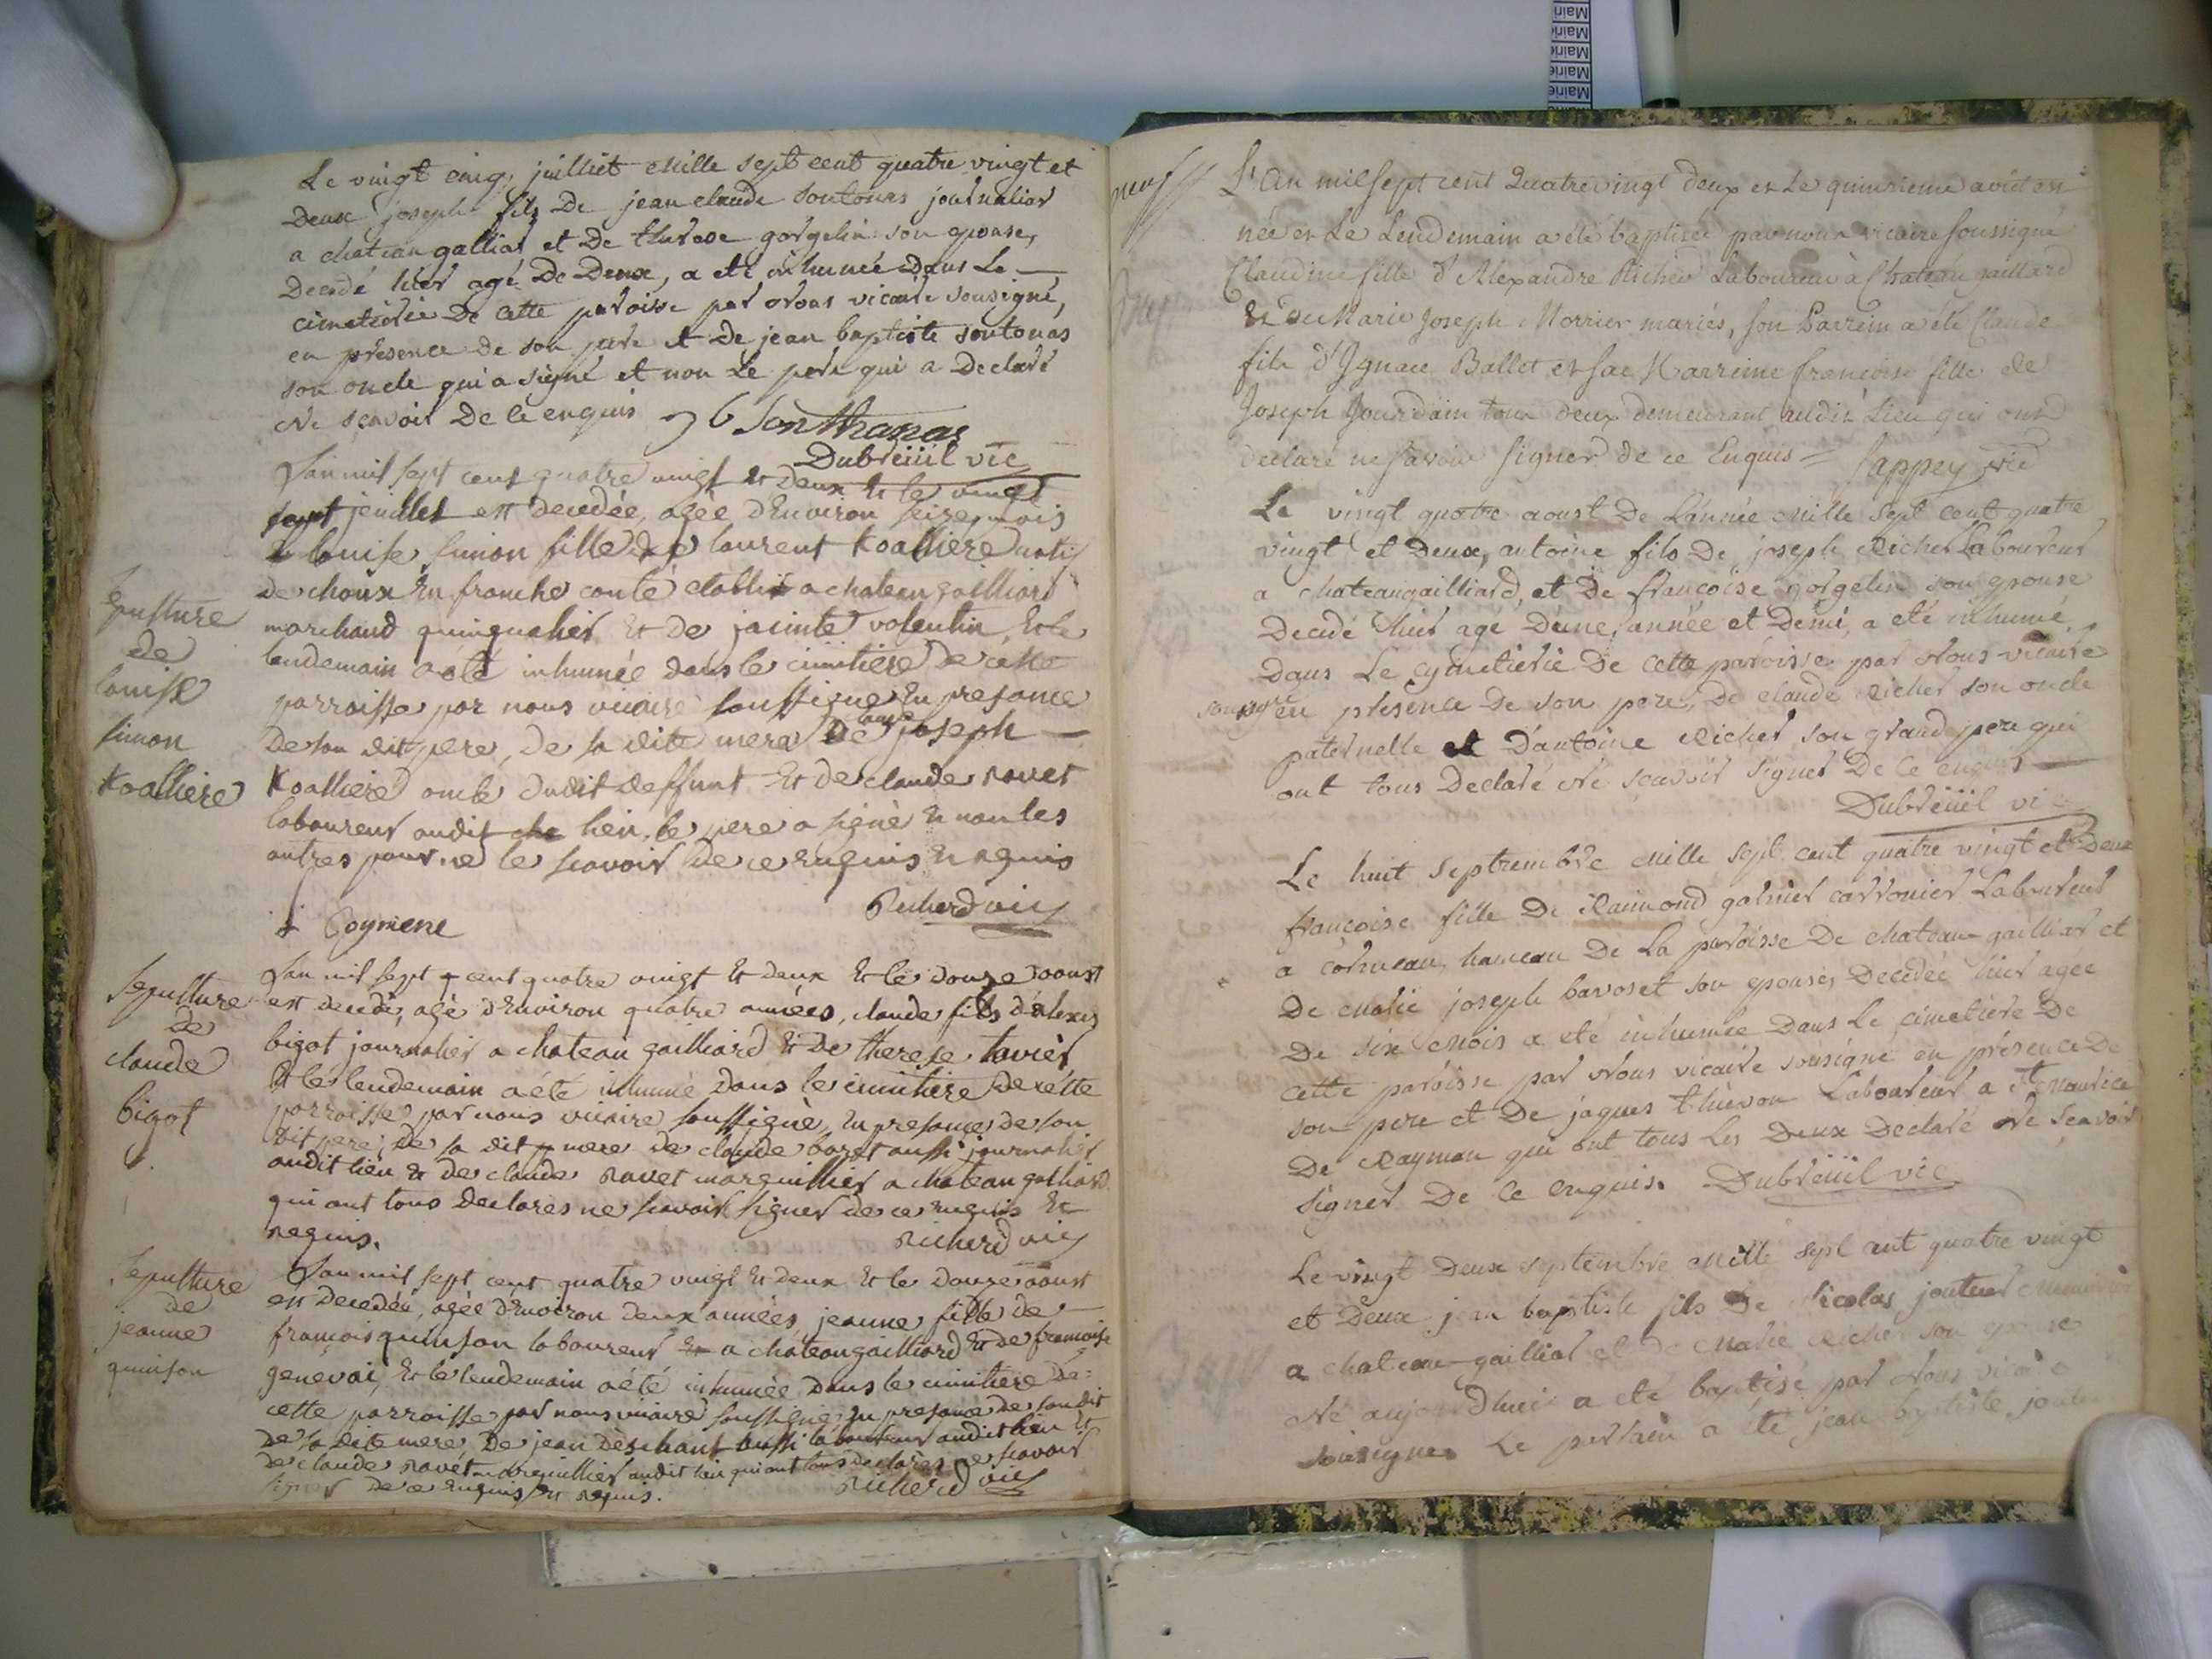 Le vingt cinq juilliet mille sept cent quatre vingt et
Deux joseph fils De jean claude sontonas journalier
a chateau galliar et De therese gorgelin son epouse,
Decedé hier agé De Deux, a eté inhumée Dans Le
cimetierie De cette paroisse par nous vicaire sousigné,
en présence de son pere et De jean baptiste sontonas
son oncle qui a signé et non Le pere qui a Declaré
Ne scavoir De ce enquis J b Sonthonas
Dubreüil vic
Lan mil sept cent quatre vingt et deux et le vingt
sept jeuillet est decedée, agée d'Environ seize mois
louise simon fille de laurent Koalliere natif
de choux En franche conté etabli a chateau gailliard
marchand quinqualier et de jacinte valentin, et le
lendemain a eté inhumée dans le cimitiere De cette
parroisse par nous vicaire soussigné En presance
De son dit pere, de sa dite mere De joseph
Koalliere oncle dudit deffunt et de claude ravet
laboureur audit lieu, le pere a signé et non les
autres pour ne le scavoir de ce enquis et requis
Richerd vic
Coymene
Sepulture
de
louise
simon
Koalliere
Lan mil sept cent quatre vingt et deux et le douze aoust
est decedé, agé d'Environ quatre années, claude fils d'alexis
bigot journalier a chateau gailliard et De therese tavier
et le lendemain a été inhumé dans le cimitiere de cétte
parroisse par nous vicaire soussigné, En presance de son
dit pere, de sa dit mere de claude baret aussi journalier
audit lieu et de claude ravet marguillier a chateau galliard
qui ont tous declarés ne scavoir signer de ce enquis et
requis. Richerd vic
Sepulture
de
claude
bigot
Lan mil sept cent quatre vingt et deux et le douze aoust
est decedée, agée d'Environ deux années, jeanne fille de
francois quinson laboureur a chateau gailliard et de francoise
genevai, et le lendemain a été inhumée dans le cimitiere de
cette parroisse par nous vicaire soussigné En presance de son dit
de sa dite mere, De jean déschant aussi laboureur audit lieu et
de claude ravét marguillier audit lieu qui ont tous declarés ne scavoir
signer de ce enquis et requis. Richerd vic
Sepulture
de
jeanne
quinson
neuf
L'an mil sept cent Quatrevingt deux et Le quinzieme août est
née et Le Lendemain a été baptisée par nous vicaire soussigné
Claudine fille d'Alexandre Richer Laboureur à Chateau gaillard
Et de Marie Joseph Morrier mariés, son Parrein a été Claude
fils d'Ignace Ballet et sae Marreine francoise fille de
Joseph Jourdain tous deux demeurant audit Lieu qui ont
declaré ne savoir signer de ce Enquis = Sappey vic
Le vingt quatre aoust De L'année mille sept cent quatre
vingt et Deux, antoine fils De joseph Richer Laboureur
a chateaugailliard, et De francoise gorgelin son epouse
Decedé hier agé D'eune, année et Démi, a eté inhumé
Dans Le cymetierie De cette paroisse par Nous vicaire
en présence De son pere, De claude Richer son oncle
paternelle et D'antoine Richer son grand pere qui
ont tous Declaré Ne scavoir signer De ce enquis
Dubreüil vic
Le huit septrembre mille sept cent quatre vingt et Deux
francoise fille De Raimond garnier carronier Laboureur
a cormeau, hameau De La paroisse De chateau-gailliar et
De Marie joseph bavoset son epouse, Decedée hier agée
De six mois a eté inhumée Dans Le cimetiere De
cette paroisse par Nous vicaire sousigné en présence De
son pere et De jaques thievon Laboureur a st maurice
De Rayman qui ont tous Les Deux Declaré Ne Scavoir
signer De ce enquis. Dubreüil vic
Le vingt Deux septembre Mille sept cent quatre vingt
et Deux jean baptiste fils De Nicolas jouteur
a chateau-gailliar et De Marie Richer son epouse
Né aujourdhui a eté baptisé par Nous vicaire
sousigné Le parrain a été jean baptiste